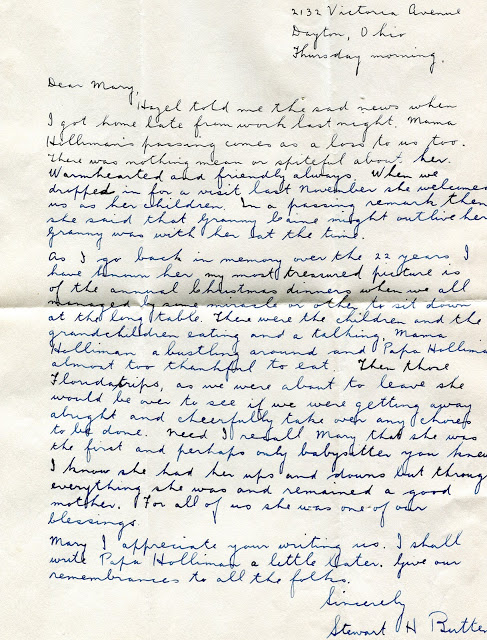 2132 Victoria Avenue
Dayton, Ohio
Thursday morning.
Dear Mary,
Hazel told me the sad news when
I got home late from work last night. Mama
Holliman's passing comes as a loss to us too.
There was nothing mean or spiteful about her.
Warmhearted and friendly always. When we
dropped in for a visit last November she welcomed
us as her children. In a passing remark then
she said that Granny might outlive her
Granny was with her at the time.
As I go back in memory over the 22 years I
have known her my most treasured picture is
of the annual Christmas dinners when we all
managed by some miracle or other to sit down
at the long table. There were the children and the
grandchildren eating and a talking, Mama
Holliman a bustling around and Papa Holliman
almost too thankful to eat. Then those
Florida trips, as we were about to leave she
would be over to see if we were getting away
alright and cheerfully take over any chores
to be done. Need I recall Mary that she was
the first and perhaps only babysitter you knew
I know she had her ups and downs but through
everything she was and remained a good
mother. For all of us she was one of our
blessings.
Mary I appreciate your writing us. I shall
write Papa Holliman a little later. Give our
remembrances to all the folks.
Sincerely
Stewart H Butte